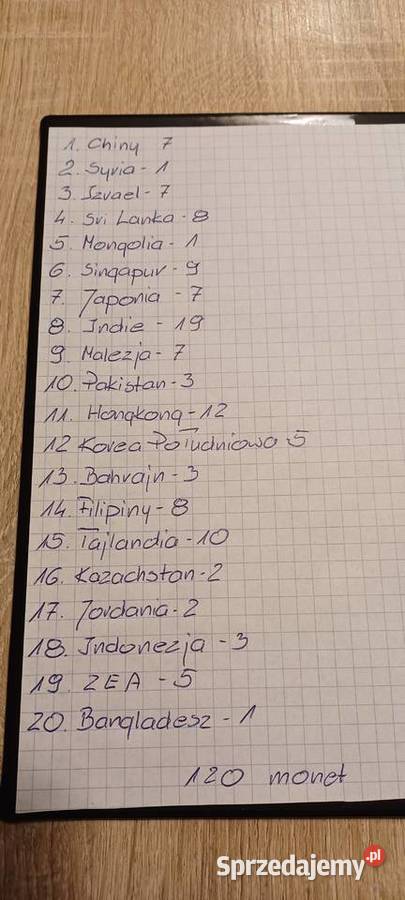 1. Chiny 7
2. Syria - 1
3. Izrael - 7
4. Sri Lanka - 8
5. Mongolia - 1
6. Singapur - 9
7. Japonia - 7
8. Indie - 19
9. Malezja - 7
10. Pakistan - 3
11. Hongkong - 12
12 Korea Południowa 5
13. Bahrajn - 3
14. Filipiny - 8
15. Tajlandia - 10
16. Kazachstan - 2
17. Jordania - 2
18. Indonezja - 3
19. ZEA - 5
20. Bangladesz - 1
120 monet
Sprzedajemy.pl